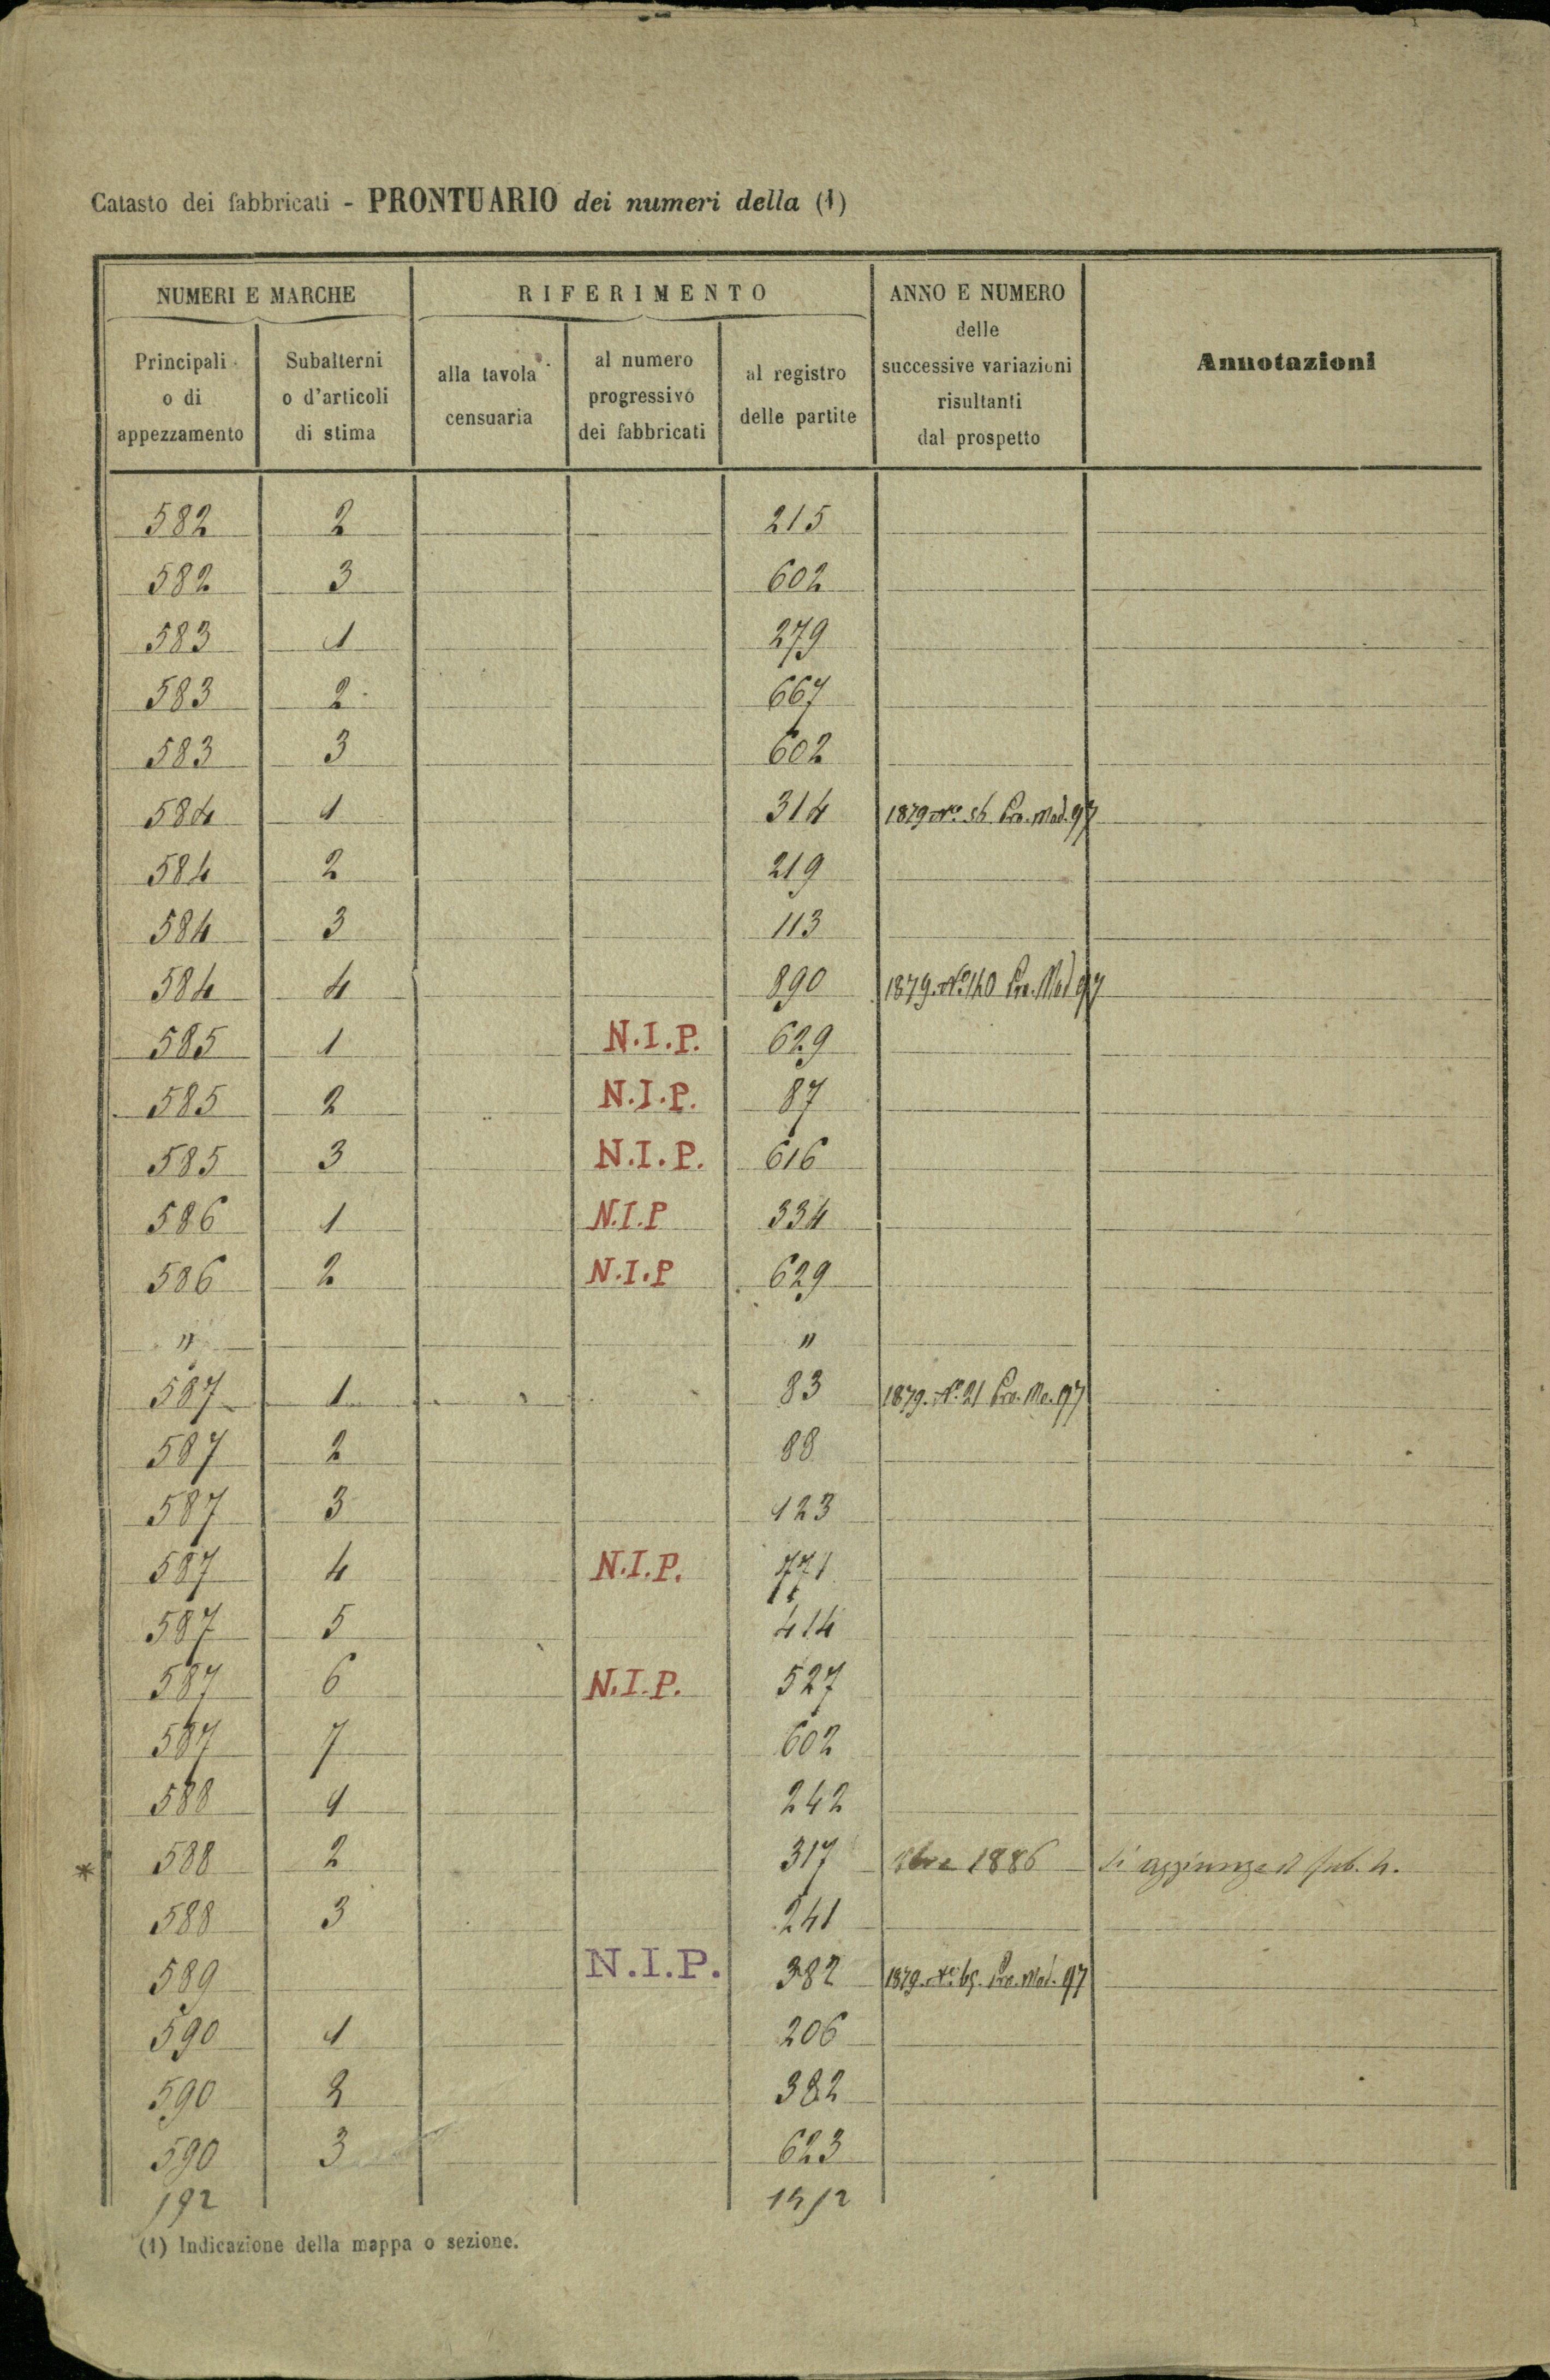 Catasto dei fabbricati - PRONTUARIO dei numeri della (1)
NUMERI E MARCHE
RIFERIMENTO
ANNO E NUMERO
delle
successive variazioni
risultanti
dal prospetto
Annotazioni
Principali
o di
appezzamento
Subalterni
o d'articoli
di stima
alla tavola
censuaria
al numero
progressivo
dei fabbricati
al registro
delle partite
582 2 215
582 3 602
583 1 279
583 2 667
583 3 602
584 1 314 1879 No. Pro. Mod. 97
584 2 219
584 3 113
584 4 890 1879. No. 140 Pro. Mod 97
585 1 N.I.P. 629
585 2 N.I.P. 87
585 3 N.I.P. 616
586 1 N.I.P 334
586 2 N.I.P 629
" "
587 1 83 1879. No. 21 Pro. Mo. 97
587 2 88
587 3 123
587 4 N.I.P. 771
587 5 414
587 6 N.I.P. 527
587 7 602
588 1 242
* 588 2 317 1886 Si aggiunge il sub. 4.
588 3 241
589 N.I.P. 382 1879. No. 65. Pro. Mod. 97
590 1 206
590 2 382
590 3 623
192
(1) Indicazione della mappa o sezione.